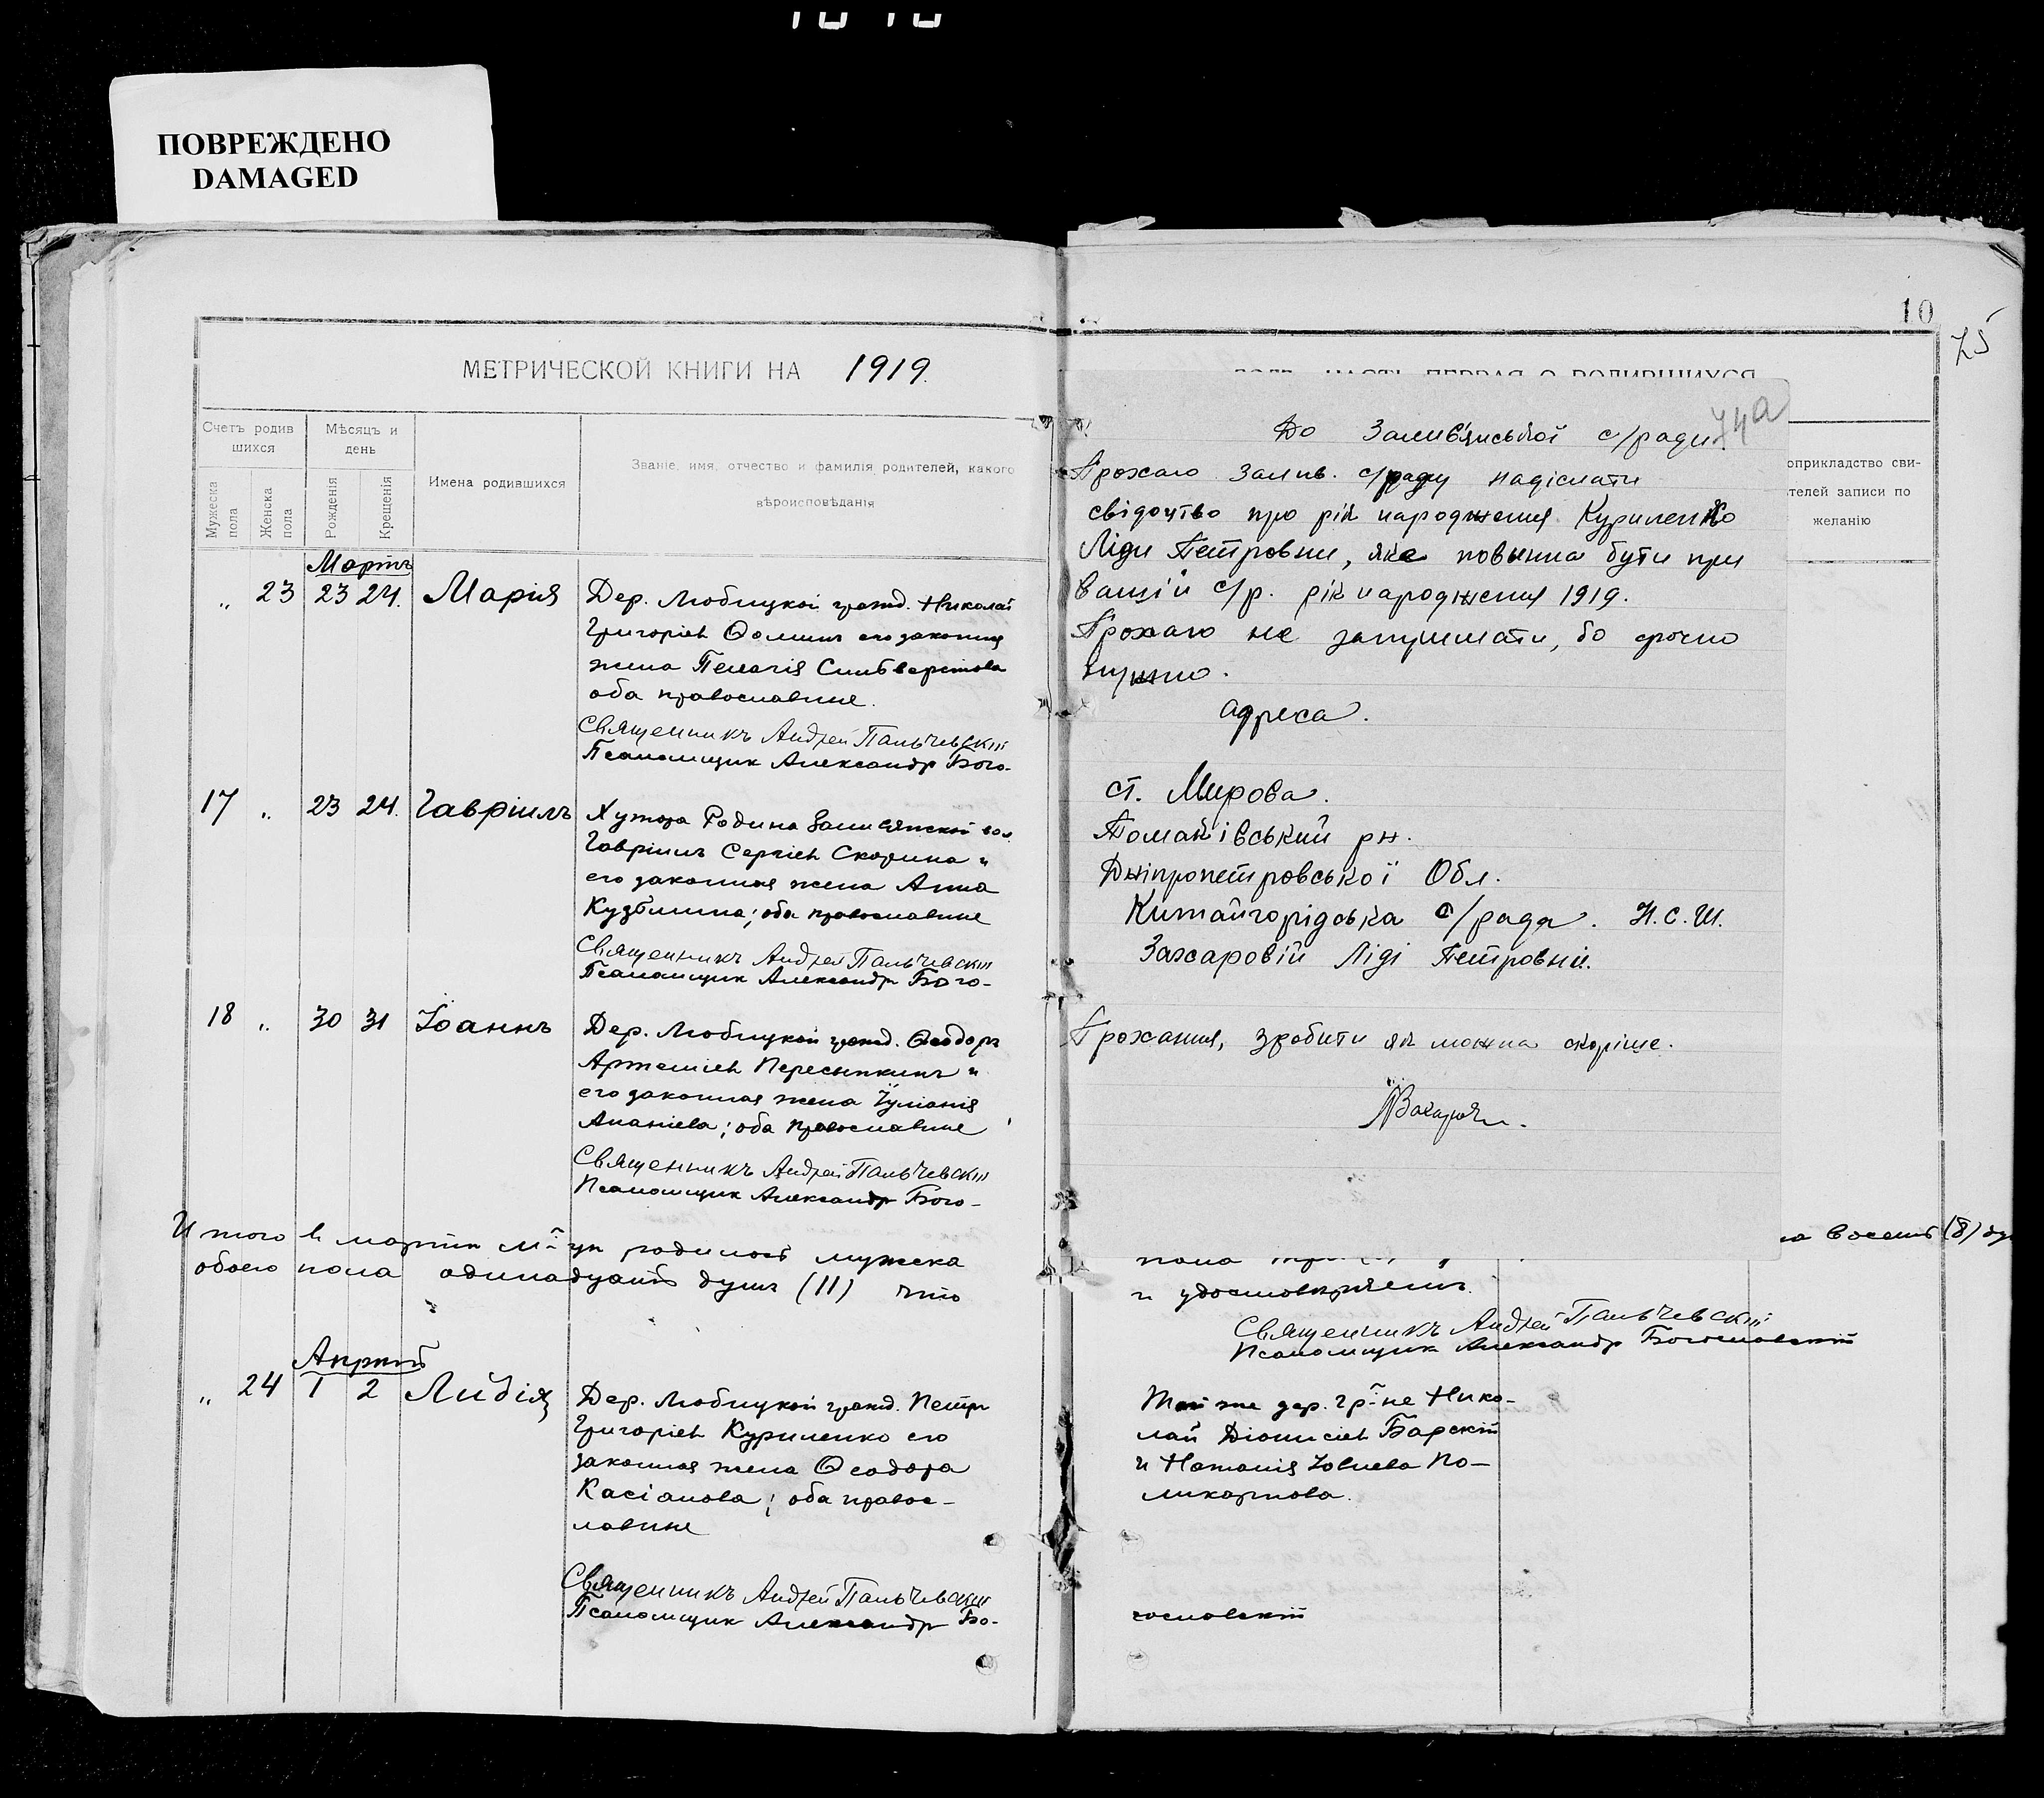 ПОВРЕЖДЕНО
DAMAGED
МЕТРИЧЕСКОЙ КНИГИ НА 1919.
Счетъ родив
шихся
Мѣсяцъ и
день
Мужеска
пола
Женска
пола
Рожденія
Крещенія
Имена родившихся
Званіе, имя, отчество и фамилія родителей, какого
вѣроисповѣданія
Мартъ
" 23 23 24. Марія
Дер. Любицкой гражд. Николай
Григоріев Ѳоминъ его законная
жена Пелагія Сильверстова
оба православные.
Священникъ Андрей Пальчевскій
Псаломщик Александр Бого-
17 " 23 24. Гавріилъ
Хутора Родина Заливянской вол.
Гавріилъ Сергіев Скорина и
его законная жена Анна
Кузьмина; оба православные
Священникъ Андрей Пальчевскій
Псаломщик Александр Бого-
18 " 30 31 Іоаннъ
Дер. Любицкой гражд. Ѳеодоръ
Артеміев Пересыпкинъ и
его законная жена Іуліанія
Ананіева; оба православные
Священникъ Андрей Пальчевскій
Псаломщик Александр Бого-
Итого в мартѣ м-цѣ родилось мужска
обоего пола одинадцать душъ (11) что
Апрѣль
" 24 1 2 Лидія
Дер. Любицкой гражд. Петръ
Григоріев Куриленко его
законная жена Ѳеодора
Касіанова; оба правос-
лавные
Священникъ Андрей Пальчевскій
Псаломщик Александр Бо-
10
75
74а
До Залив'янської с/ради.
Прохаю Залив. с/раду надіслати
свідоцтво про рік народження Куриленко
Ліди Петровни, яке повинна бути при
Вашій с/р. рік народження 1919.
Прохаю не затримати, бо срочно
нужно.
Адреса.
ст. Мирова.
Томаківський рн.
Дніпропетровської Обл.
Китайгорідська с/рада. Н.С.Ш.
Захаровій Ліді Петровній.
Прохання, зробити як можна скоріше.
оприкладство сви-
телей записи по
желанію
на восемь (8)
пола
и удостовѣряемъ.
Священникъ Андрей Пальчевскій
Псаломщик Александр Богословскій
Той же дер. гр-не Нико-
лай Діонисіев Барскій
и Наталія Іовлева По-
ликарпова.
гословскій